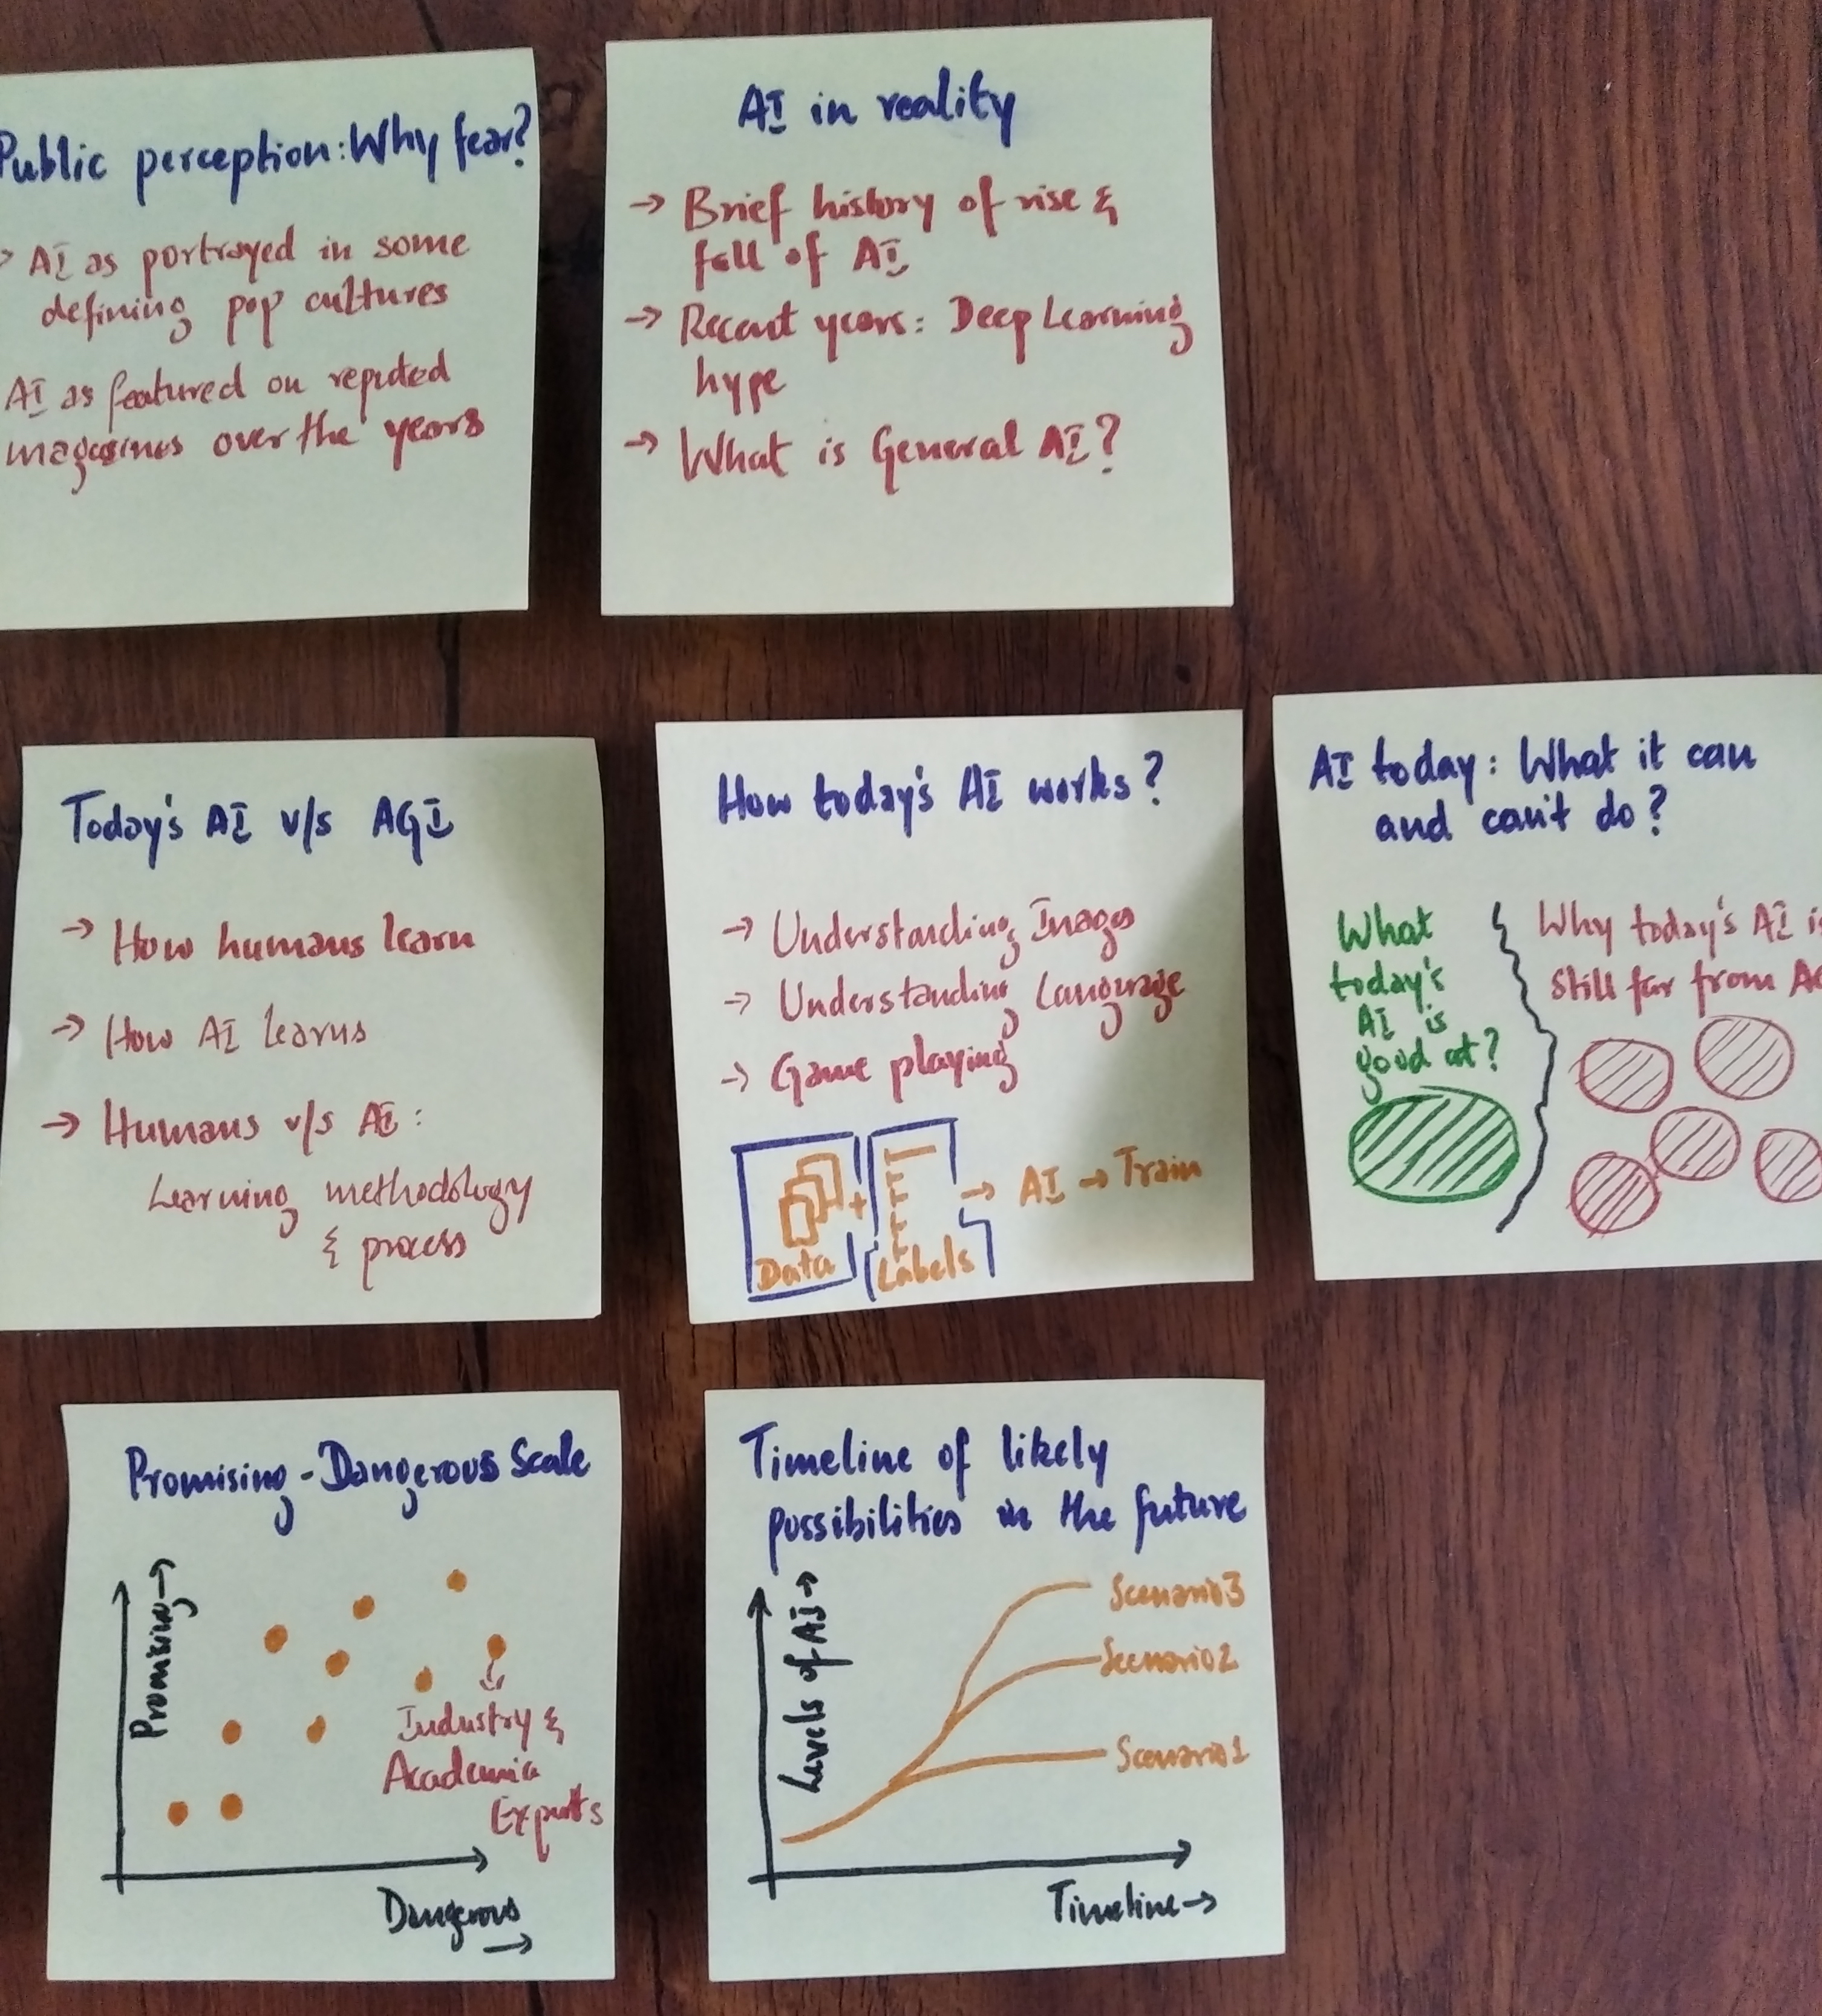 Public perception: Why fear?
> AI as portrayed in some
defining pop cultures
AI as featured on reputed
magazines over the years
AI in reality
→ Brief history of rise &
fall of AI
→ Recent years: Deep Learning
hype
→ What is General AI?
Today's AI v/s AGI
→ How humans learn
→ How AI learns
→ Humans v/s AI:
Learning methodology
& process
How today's AI works?
→ Understanding Images
→ Understanding Language
→ Game playing
Data + Labels → AI → Train
AI today: What it can
and can't do?
What
today's
AI is
good at?
Why today's AI is
still far from
Promising-Dangerous Scale
Promising→
Industry &
Academia
Experts
Dangerous
→
Timeline of likely
possibilities in the future
Levels of AI→
Scenario3
Scenario2
Scenario1
Timeline→